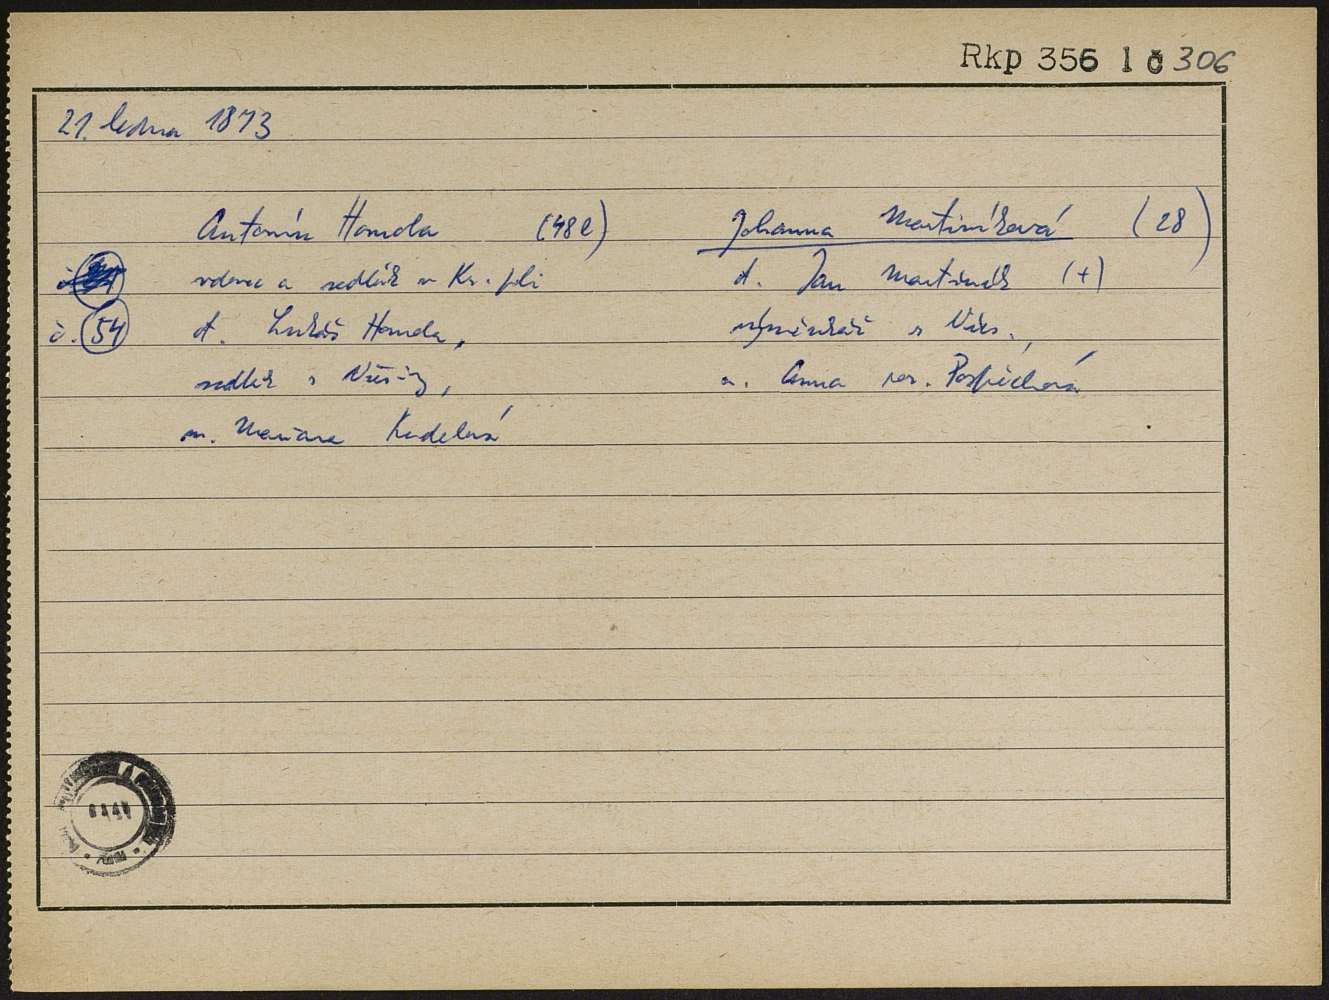 Rkp 356 1 č 306
21. ledna 1873
Antonín Homola (48 l)
vdovec a sedlák v Kr. poli
č. 54 ot. Lukáš Homola,
sedlák z
m. Mariana Kudelová
Johanna Martináková (28)
ot. Jan Martinák (+)
výměnkář z
m. Anna roz. Pospěchová